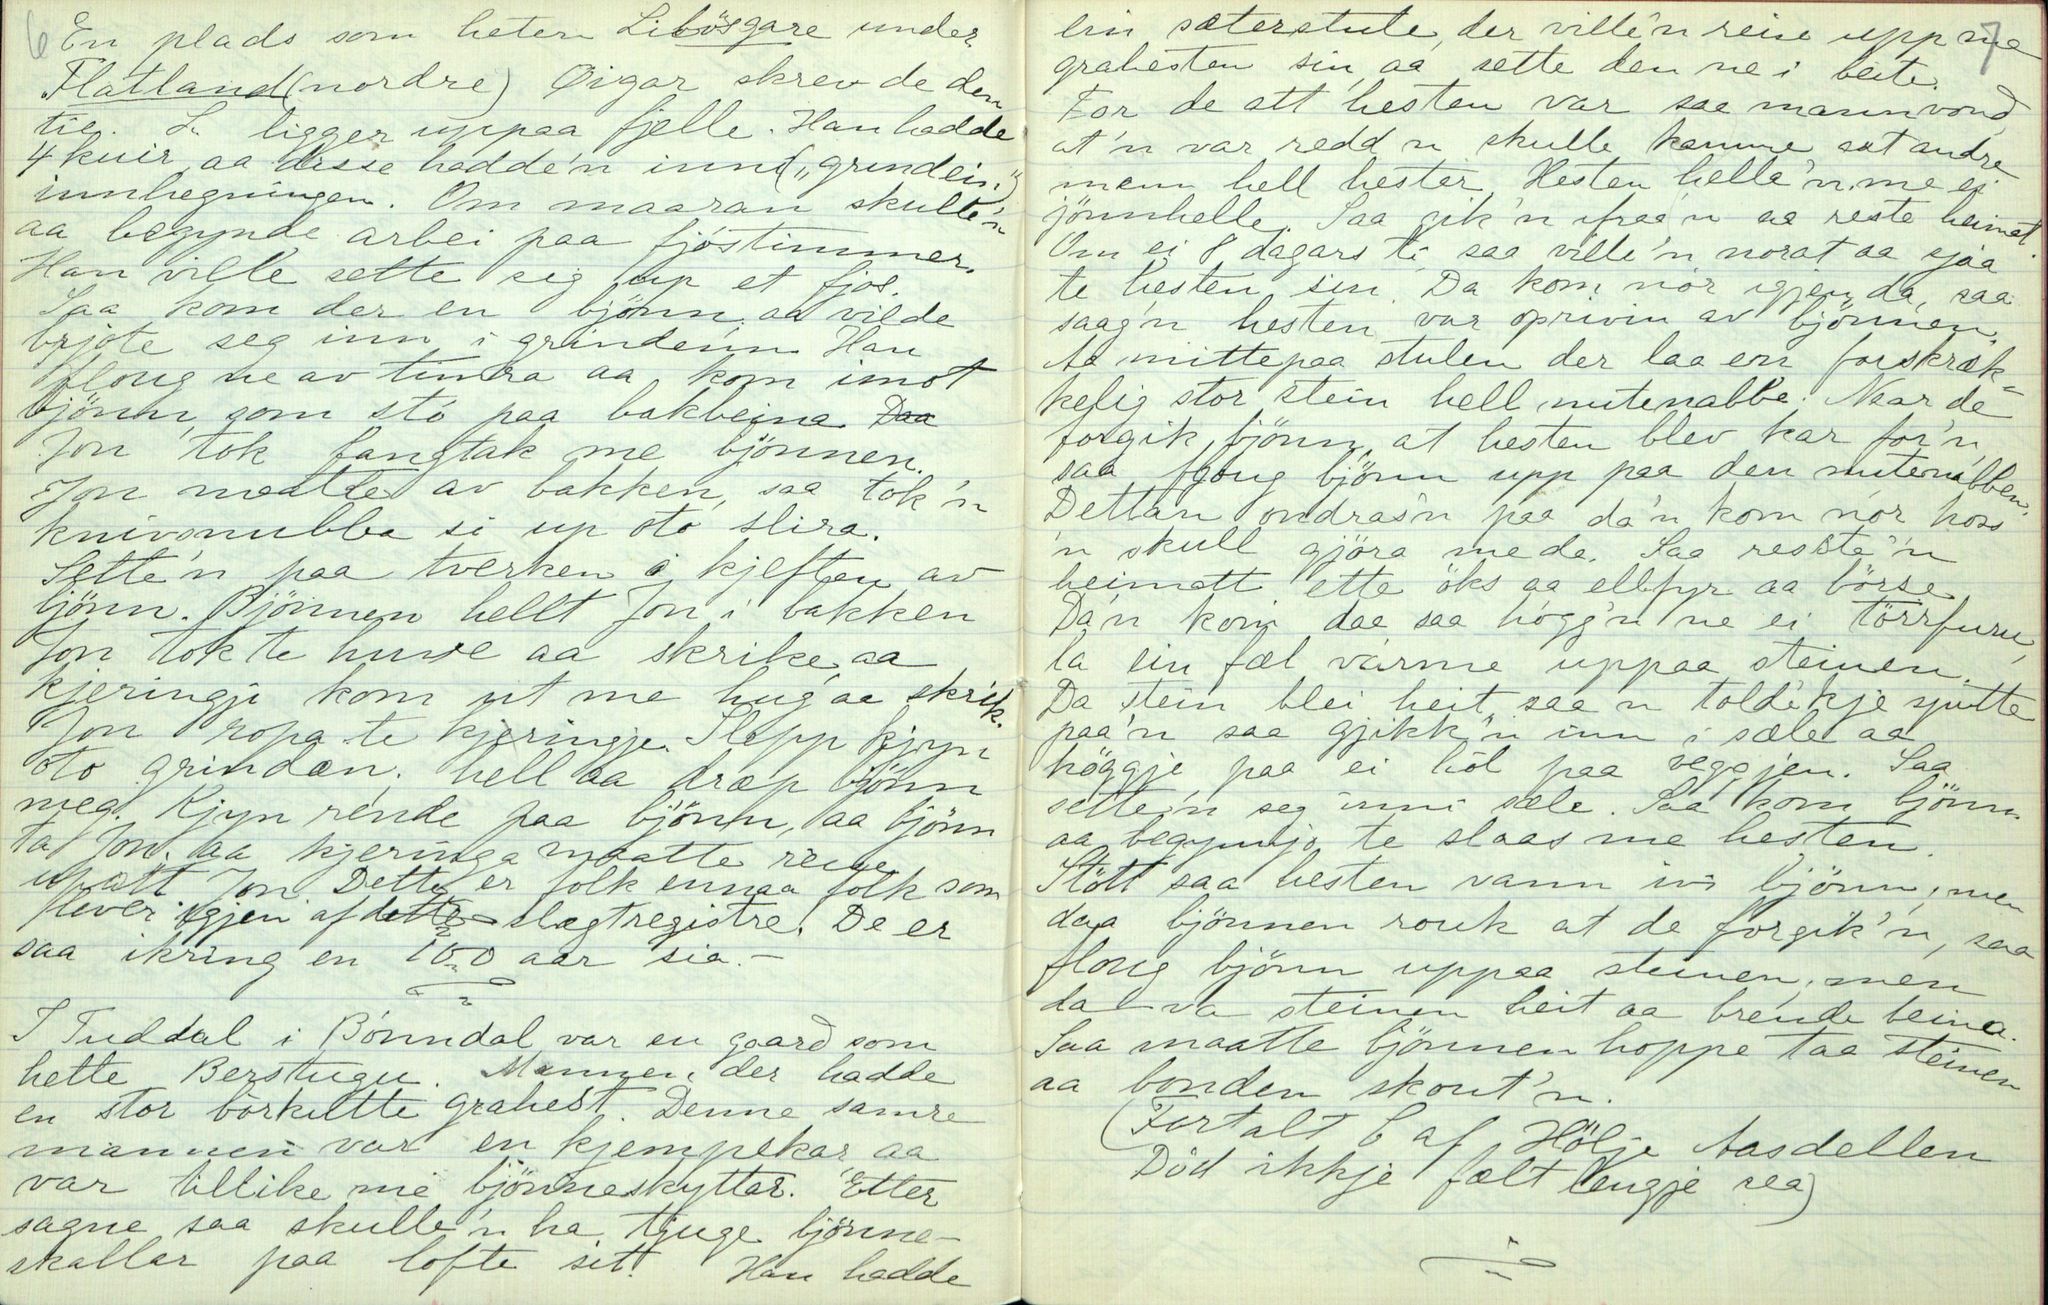 6
En plads som heten Libösgare under
Flatland (nordre) Øigar skrev de den
tie. L. ligger uppaa fjelle. Han hadde
4 kuir aa disse hadde'n inn i ("grindein")
innhegningen. Om maaran skulle'n
aa begynde arbei paa fjöstimmer.
Han ville sette sig up et fjos.
Saa kom der en bjönn aa vilde
brjote seg inn i grindeinn Han
floug ne av timra aa kom imot
bjönn, som sto paa bakbeina Daa
Jon tok fangtak me bjönnen.
Jon maatte av bakken, saa tok'n
knivsnubba si up oto slira.
Sette'n paa tverken i kjeften av
bjönn. Bjönnen hellt Jon i bakken
Jon tok te huse aa skrike, aa
kjeringji kom ut me hug aa skrik.
Jon ropa te kjeringje Slepp kjyn
oto grindæn, hell aa dræp bjönn
meg. Kjyn rende paa bjönn, aa bjönn
ta Jon. aa kjeringa maatte reise
upatt Jon Dette er folk ennaa folk som
lever igjen af dette slegtregistre. De er
saa ikring en 150 aar sia. -
I Tuddal i Bönndal var en gaard som
hette Berstugu. Mannen der hadde
en stor börkutte grahest. Denne samre
mannen var en kjempekar aa
var tillike me bjönneskyttar. Etter
sagne saa skulle'n ha tjuge bjönne-
skallar paa lofte sit. Han hadde
7
ein sæterstule, der ville'n reise upp me
grahesten sin, aa sette den ne i beite.
For de att hesten var saa mannvond
at'n var redd'n skulle komme aat andre
menn hell hester. Hesten helle'n me ei
jönnhelle. Saa gik'n ifraa'n aa reste heimat.
Om ei 8 dagars ti saa ville'n norat aa sjaa
te hesten sin. Da kom'n nor igjen da, saa
saag'n hesten var opriven av bjönnen.
Aa mittepaa stulen der laa en forskræk-
kelig stor stein hell nutenabbe. Naar de
forgik bjönn, at hesten blev kar for'n,
saa floug bjönn upp paa den nutenabben.
Dettan ondras'n paa da'n kom nor hoss
'n skull gjöra me de. Saa resste'n
heimatt ette öks aa ellfyr aa börse
Da'n kom daa saa högg'n ne ei törrfuru,
la ein fæl varme uppaa steinen.
Da stein blei heit saa'n told'ikje sputte
paa'n saa gjikk'n inn i sæle aa
höggje paa ei hol paa veggjen. Saa
sette'n seg inni sæle. Saa kom bjönn
aa begynnjo te slaas me hesten.
Stött saa hesten vann ivi bjönn, men
daa bjönnen rouk at de forgik'n, saa
floug bjönn uppaa steinen, men
da va steinen heit aa brende beina.
Saa maatte bjönnen hoppe taa steinen
aa bonden skout'n.
(Fortalt af Hölje Aasdellen
Död ikkje fælt lengje sea)